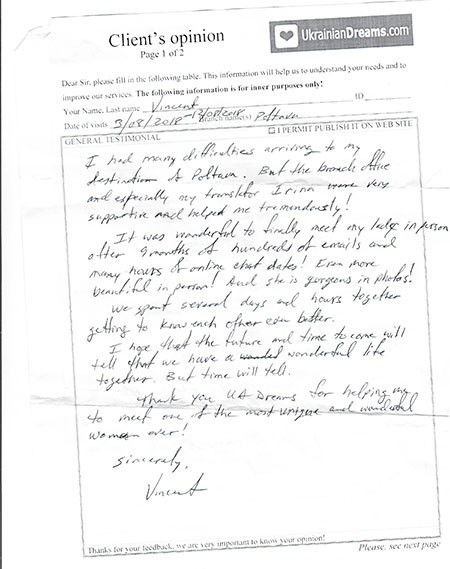 Client's opinion
UkrainianDreams.com
Page 1 of 2
Dear Sir, please fill in the following table. This information will help us to understand your needs and to
improve our services. The following information is for inner purposes only!
Your Name, Last name Vincent ID
Date of visits 3/08/2018 - 13/08/2018 Branch name(s) Poltava
GENERAL TESTIMONIAL
I PERMIT PUBLISH IT ON WEB SITE
I had many difficulties arriving to my
destination to Poltava. But the branch office
and especially my translator Irina were very
supportive and helped me tremendously!
It was wonderful to finally meet my lady in person
after 9 months of hundreds of emails and
many hours of online chat dates! Even more
beautiful in person! And she is gorgeous in photos!
We spent several days and hours together
getting to know each other even better.
I hope that the future and time to come will
tell that we have a wonderful life
together. But time will tell.
Thank you UA Dreams for helping me
to meet one of the most unique and wonderful
woman ever!
Sincerely,
Vincent
Thanks for your feedback, we are very important to know your opinion!
Please, see next page